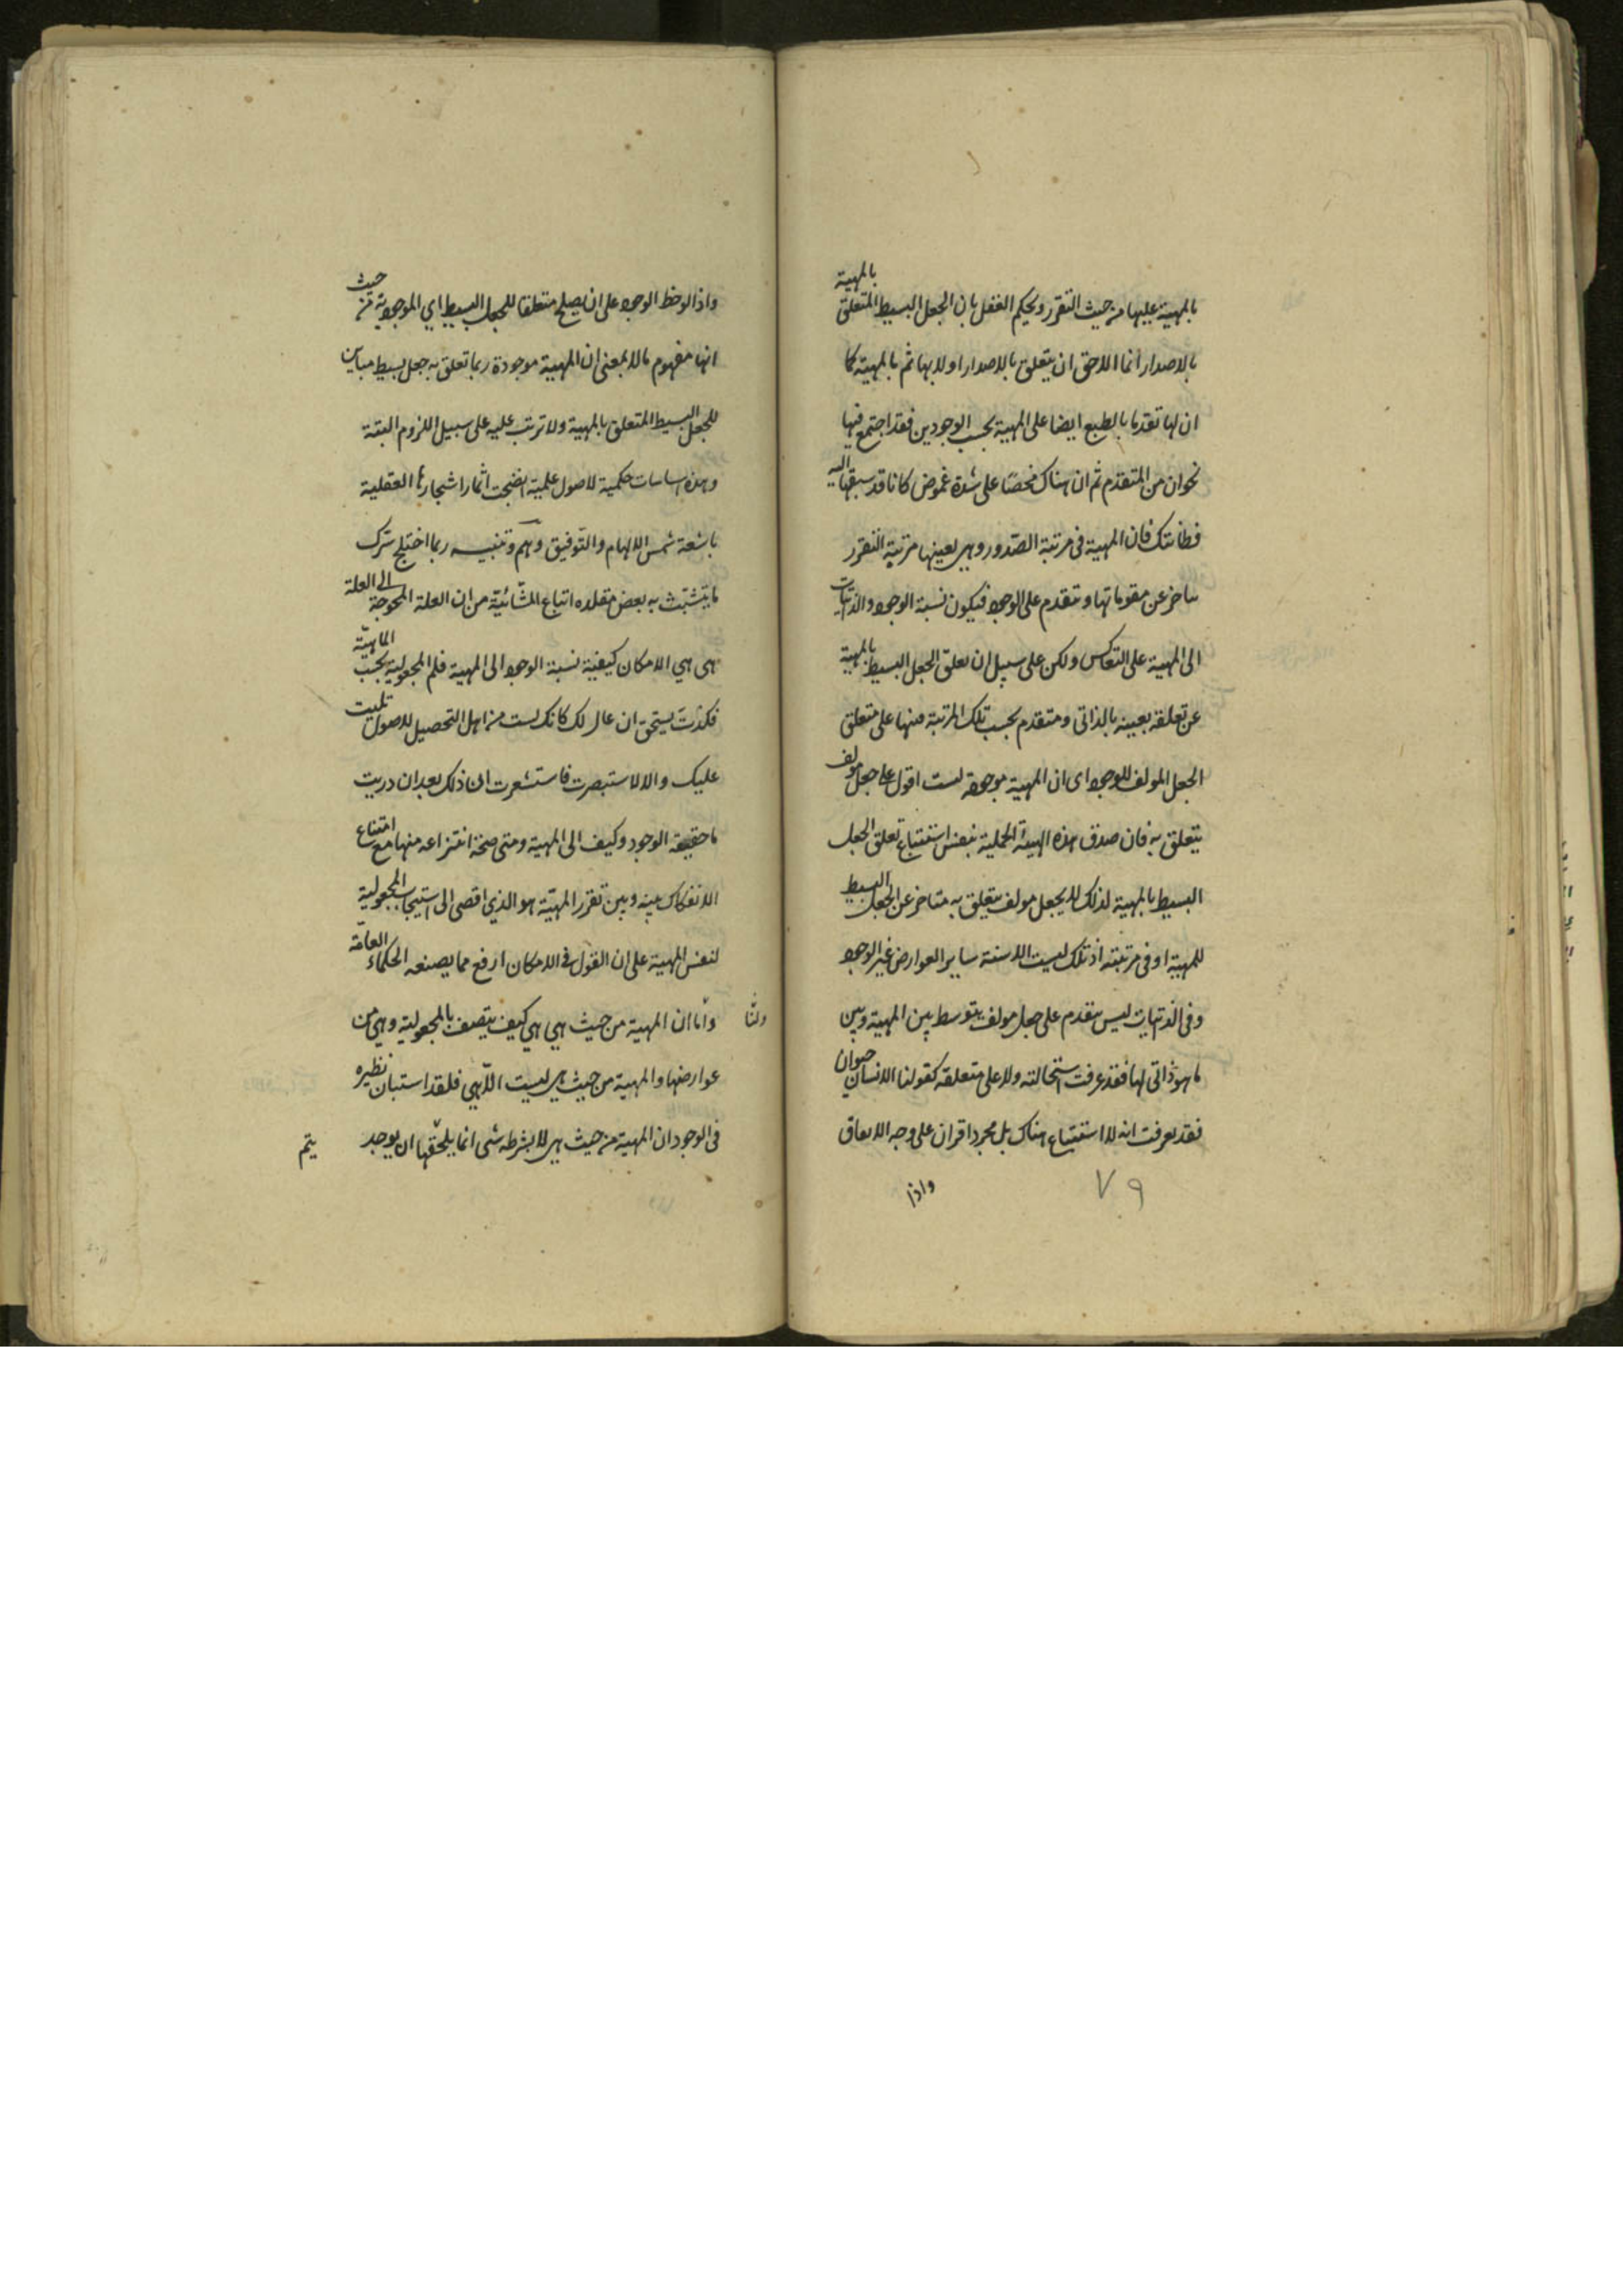 بالمهية عليها من حيث التقرر ويحكم العقل بان الجعل البسيط المتعلق بالمهية
بالاصدار انما اللاحق ان يتعلق بالاصدار اولا بها ثم بالمهية كما
ان لها تقدما بالطبع ايضا على المهية بحسب الوجودين فقد اجتمع فيها
نحوان من التقدم ثم ان هناك فحصا على شدة غموض كانا قد سبقنا اليه
فطانتك فان المهية فى مرتبة الصدور وهى بعينها مرتبة التقرر
يتاخر عن مقوماتها ويتقدم على الوجود فيكون نسبة الوجود والذاتيات
الى المهية على التعاكس ولكن على سبيل ان تعلق الجعل البسيط بالمهية
عن تعلقه بعينه بالذاتى ومتقدم بحسب تلك المرتبة منها على متعلق
الجعل المولف للوجود اى ان المهية موجودة لست اقول على جعل مولف
يتعلق به فان صدق هذه الهيئة الحملية بنفس استتباع تعلق الجعل
البسيط بالمهية لذلك لا بجعل مولف يتعلق به متاخر عن الجعل البسيط
للمهية او فى مرتبته اذ تلك ليست الا سنة ساير العوارض غير الوجود
وفى الذاتيات ليس يتقدم على جعل مولف يتوسط بين المهية وبين
ما هو ذاتى لها فقد عرفت استحالته ولا على متعلقه كقولنا الانسان حيوان
فقد تعرفت انه لا استتباع هناك بل مجرد اقران على وجه الاتفاق
واذا
٧٩
واذا لوحظ الوجود على ان يصلح متعلقا للجعل البسيط اي الموجودية من حيث
انها مفهوم ما لا بمعنى ان المهية موجودة ربما تعلق به جعل بسيط مباين
للجعل البسيط المتعلق بالمهية ولا ترتب عليه على سبيل اللزوم البتة
وهذه اساسات حكمية لاصول علمية انضجت اثمار اشجارها العقلية
باشعة شمس الالهام والتوفيق وهم وتنبيه ربما اختلج سرك
ما يتشبث به بعض مقلده اتباع المشائية من ان العلة المحوجة الى العلة
هى هي الامكان كيفية نسبة الوجود الى المهية فلم المجعولية بحسب الماهية
فكذت يستحق ان عال لك كانك لست من اهل التحصيل للاصول تليت
عليك والا لاستبصرت فاستشعرت ان ذلك بعد ان دريت
ما حقيقة الوجود وكيف الى المهية ومتى صحة انتزاعه منها مع امتناع
الانفكاك بينه وبين تقرر المهية هو الذي اقضى الى استيجاب المجعولية
لنفس المهية على ان القول فى الامكان ارفع مما يصنعه الحكماء العامة
واما ان المهية من حيث هي هي كيف يتصف بالمجعولية وهي من
عوارضها والمهية من حيث هى ليست الا هي فلقد استبان نظيره
فى الوجود ان المهية من حيث هى لا بشرط شى انما يلحقها ان يوجد
يتم